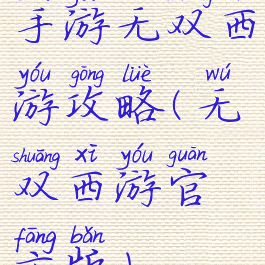 手游无双西
yóu gōng lüè wú
游攻略(无
shuāng xī yóu guān
双西游官
fāng bǎn
方版)